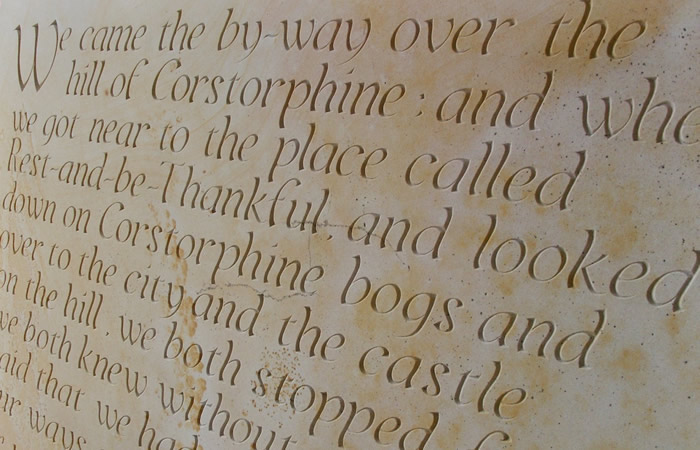 We came the by-way over the
hill of Corstorphine; and
we got near to the place called
Rest-and-be-Thankful, and looked
down on Corstorphine bogs and
over to the city and the castle
on the hill, we both stopped, f
we both knew without
said that we had
our ways